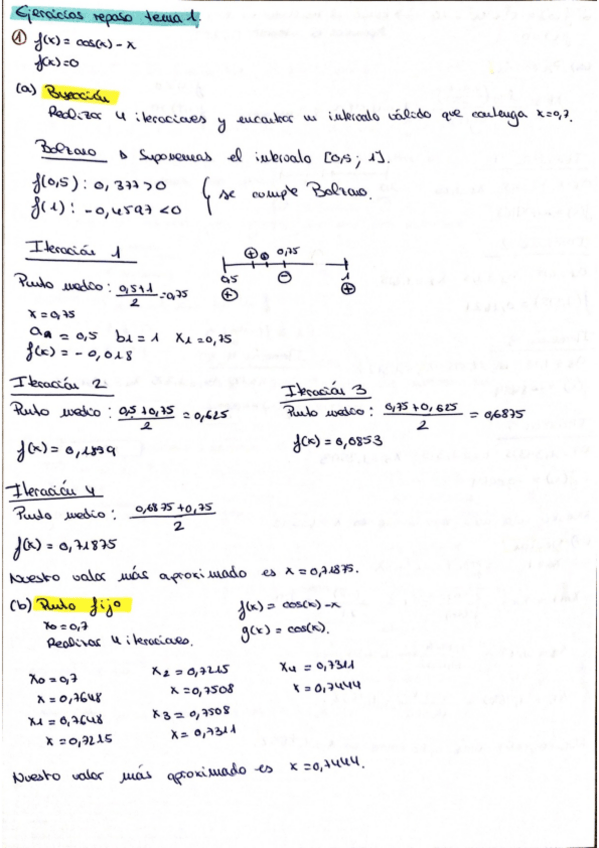 Ejercicios repaso tema 1.
① f(x) = cos(x) - x
f(x) = 0
(a) Bisección
Realizar 4 iteraciones y encontrar un intervalo válido que contenga x=0,7.
Bolzano → Suponemos el intervalo [0,5 ; 1].
f(0,5) : 0,377 > 0
f(1) : -0,4597 < 0
se cumple Bolzano.
Iteración 1
Punto medio : 0,5+1 / 2 = 0,75
x = 0,75
a1 = 0,5 b1 = 1 x1 = 0,75
f(x) = -0,018
⊕ ⊕ 0,75
0,5 ⊖ 1
⊕ ⊕
Iteración 2
Punto medio : 0,5+0,75 / 2 = 0,625
f(x) = 0,1859
Iteración 3
Punto medio : 0,75+0,625 / 2 = 0,6875
f(x) = 0,0853
Iteración 4
Punto medio : 0,6875+0,75 / 2
f(x) = 0,71875
Nuestro valor más aproximado es x = 0,71875.
(b) Punto fijo
x0 = 0,7
Realizar 4 iteraciones.
f(x) = cos(x) - x
g(x) = cos(x).
x0 = 0,7
x = 0,7648
x1 = 0,7648
x = 0,7215
x2 = 0,7215
x = 0,7508
x3 = 0,7508
x = 0,7311
x4 = 0,7311
x = 0,7444
Nuestro valor más aproximado es x = 0,7444.